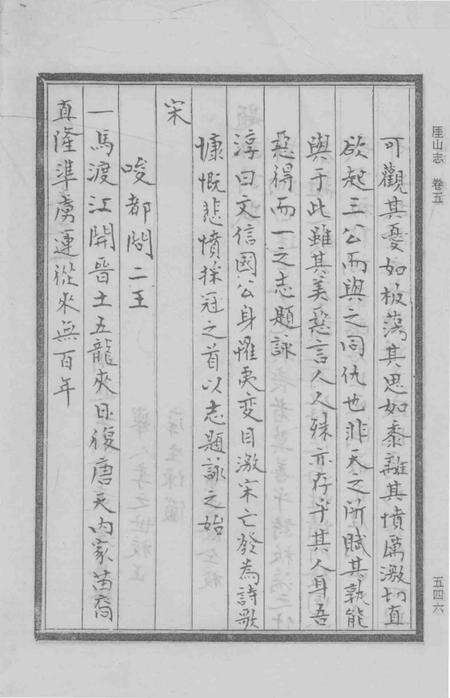 厓山志 卷五
可觀其憂如板蕩其思如黍離其憤厲激切直
欲起三公而與之同仇也非天之所賦其孰能
與于此雖其美惡言人人殊亦存乎其人身吾
惡得而一之志題詠
淳曰文信國公身懼更变目激宋亡發為詩歌
慷慨悲憤採冠之首以志題詠之始
宋
唆都閙二王
一馬渡江開晉土五龍夾日復唐天內家苗裔
真隆準虜運從來無百年
五四六